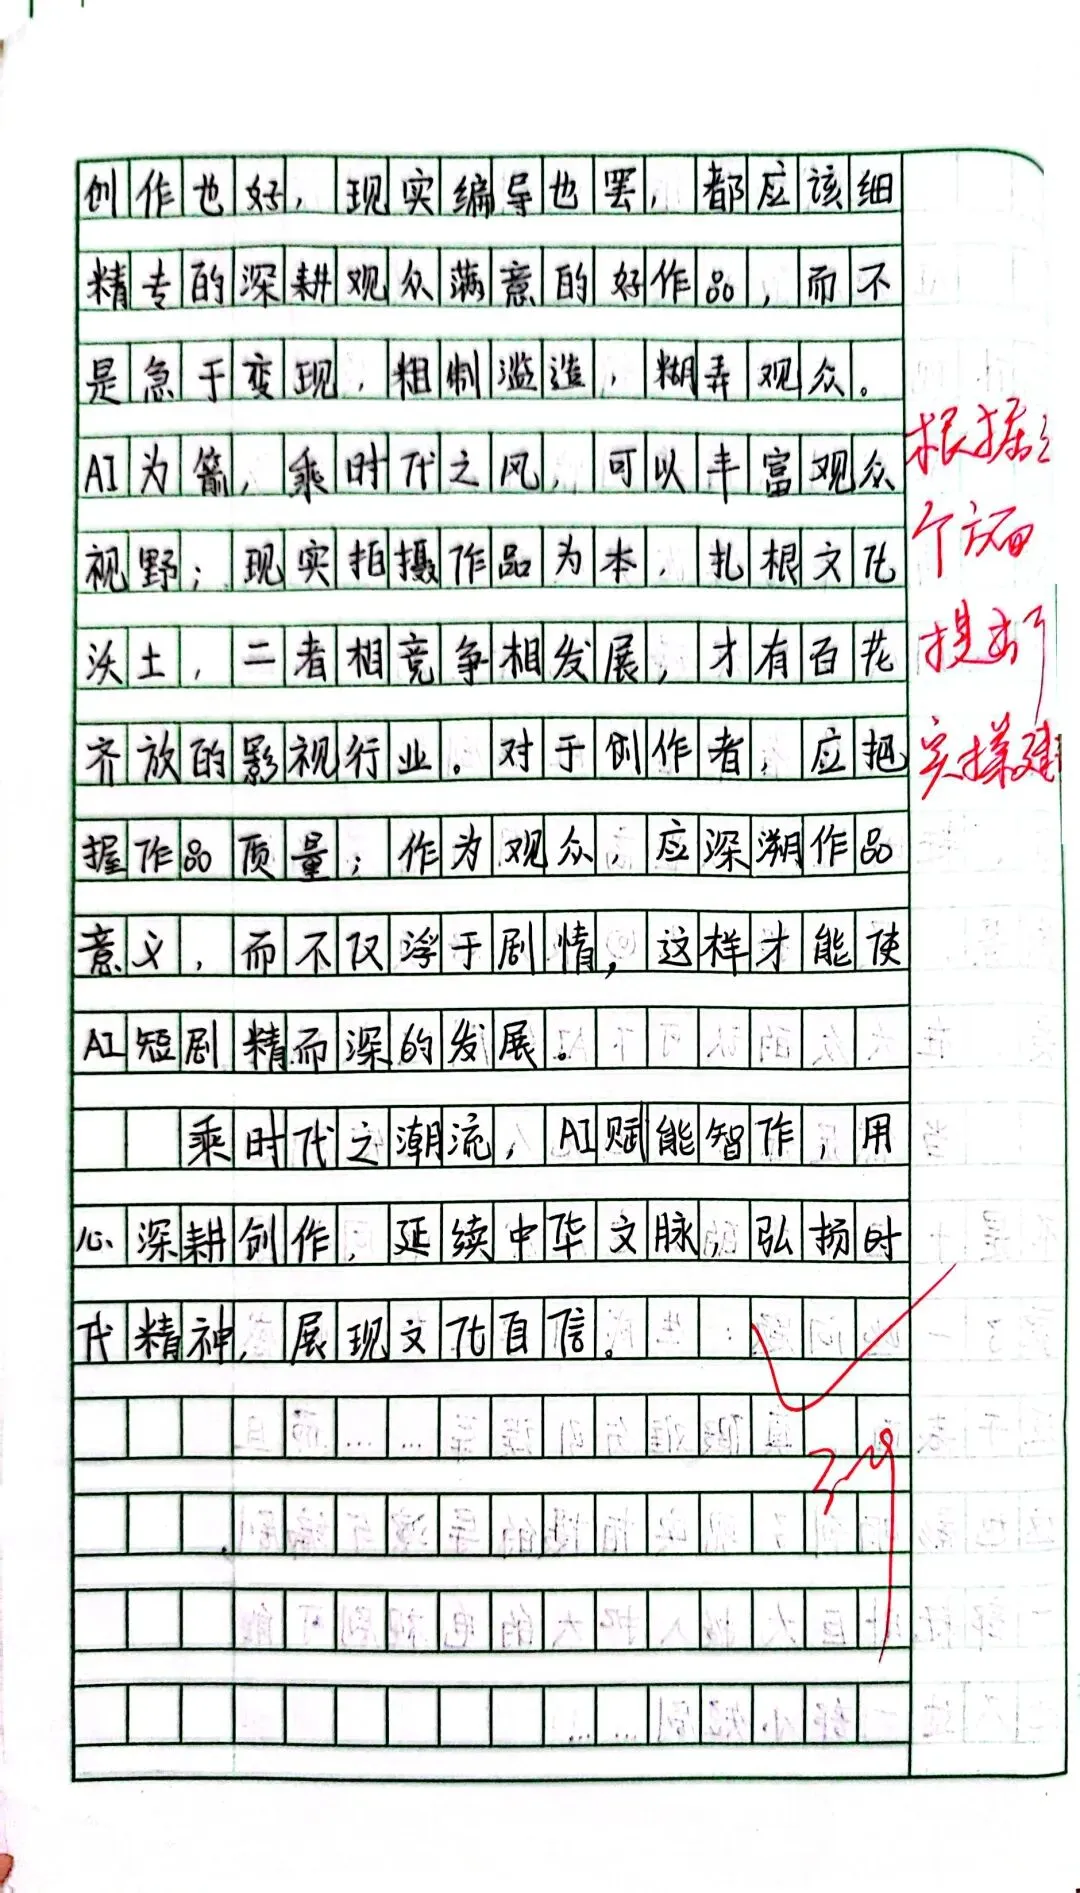 创作也好，现实编导也罢，都应该细
精专的深耕观众满意的好作品，而不
是急于变现，粗制滥造，糊弄观众。
AI为箭，乘时代之风，可以丰富观众
视野；现实拍摄作品为本，扎根文化
沃土，二者相竞争相发展，才有百花
齐放的影视行业。对于创作者，应把
握作品质量；作为观众，应深溯作品
意义，而不仅浮于剧情，这样才能使
AI短剧精而深的发展。
乘时代之潮流，AI赋能智作，用
心深耕创作，延续中华文脉，弘扬时
代精神，展现文化自信。
根据
个方面
提出了
实操建